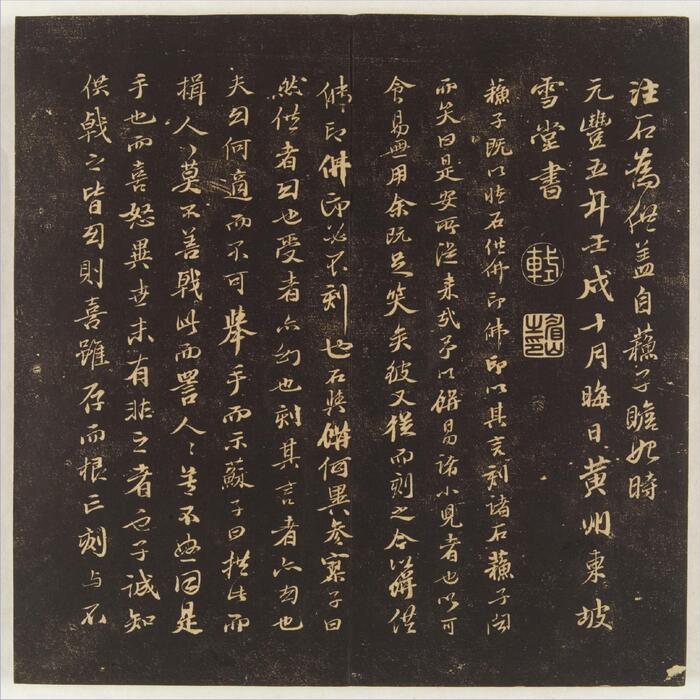 注石為供蓋自蘇子瞻始時
元豐五年壬戌十月晦日黃州東坡
雪堂書
蘇子既以怪石供佛印佛印以其言刻諸石蘇子聞
而笑曰是安所從来哉予以餅易諸小兒者也以可
食易無用余既足笑矣彼又從而刻之今以餅供
佛印佛印必不刻也石與餅何異參寥子曰
然供者幻也受者亦幻也刻其言者亦幻也
夫幻何適而不可舉手而示蘇子曰拱此而
揖人人莫不善戟此而詈人人莫不怒同是
手也而喜怒異世未有非之者也子誠知
供戟之皆幻則喜雖存而根亡刻與不